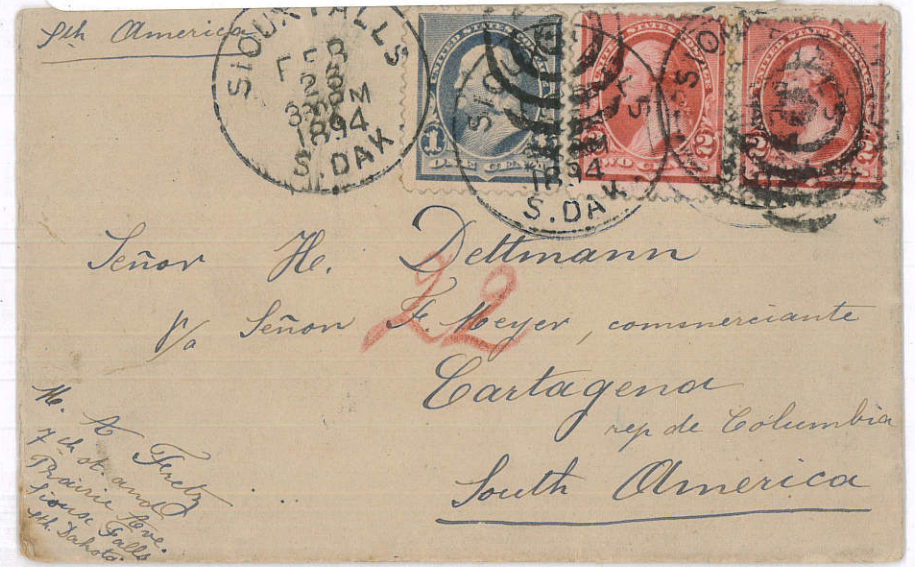 Sth America
SIOUX FALLS
FEB
26
830 PM
1894
S. DAK
UNITED STATES POSTAGE
1
ONE CENT
1894
S. DAK.
UNITED STATES POSTAGE
TWO CENTS 2
2
Señor H. Dettmann
p/a Señor F. Meyer, commerciante
22
Cartagena
rep de Columbia
South America
H. A Fretz
7th st. and
Prairie Ave.
Sioux Falls
Sth. Dakota.